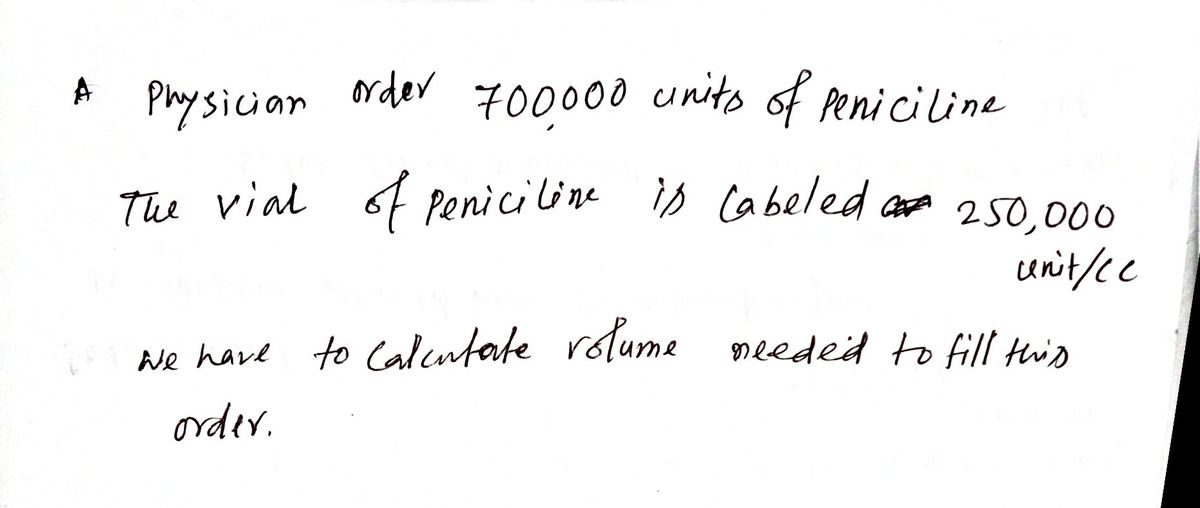 A Physician order 700,000 units of Peniciline
The vial of Peniciline is labeled 250,000
unit/cc
we have to Calculate volume needed to fill this
order.